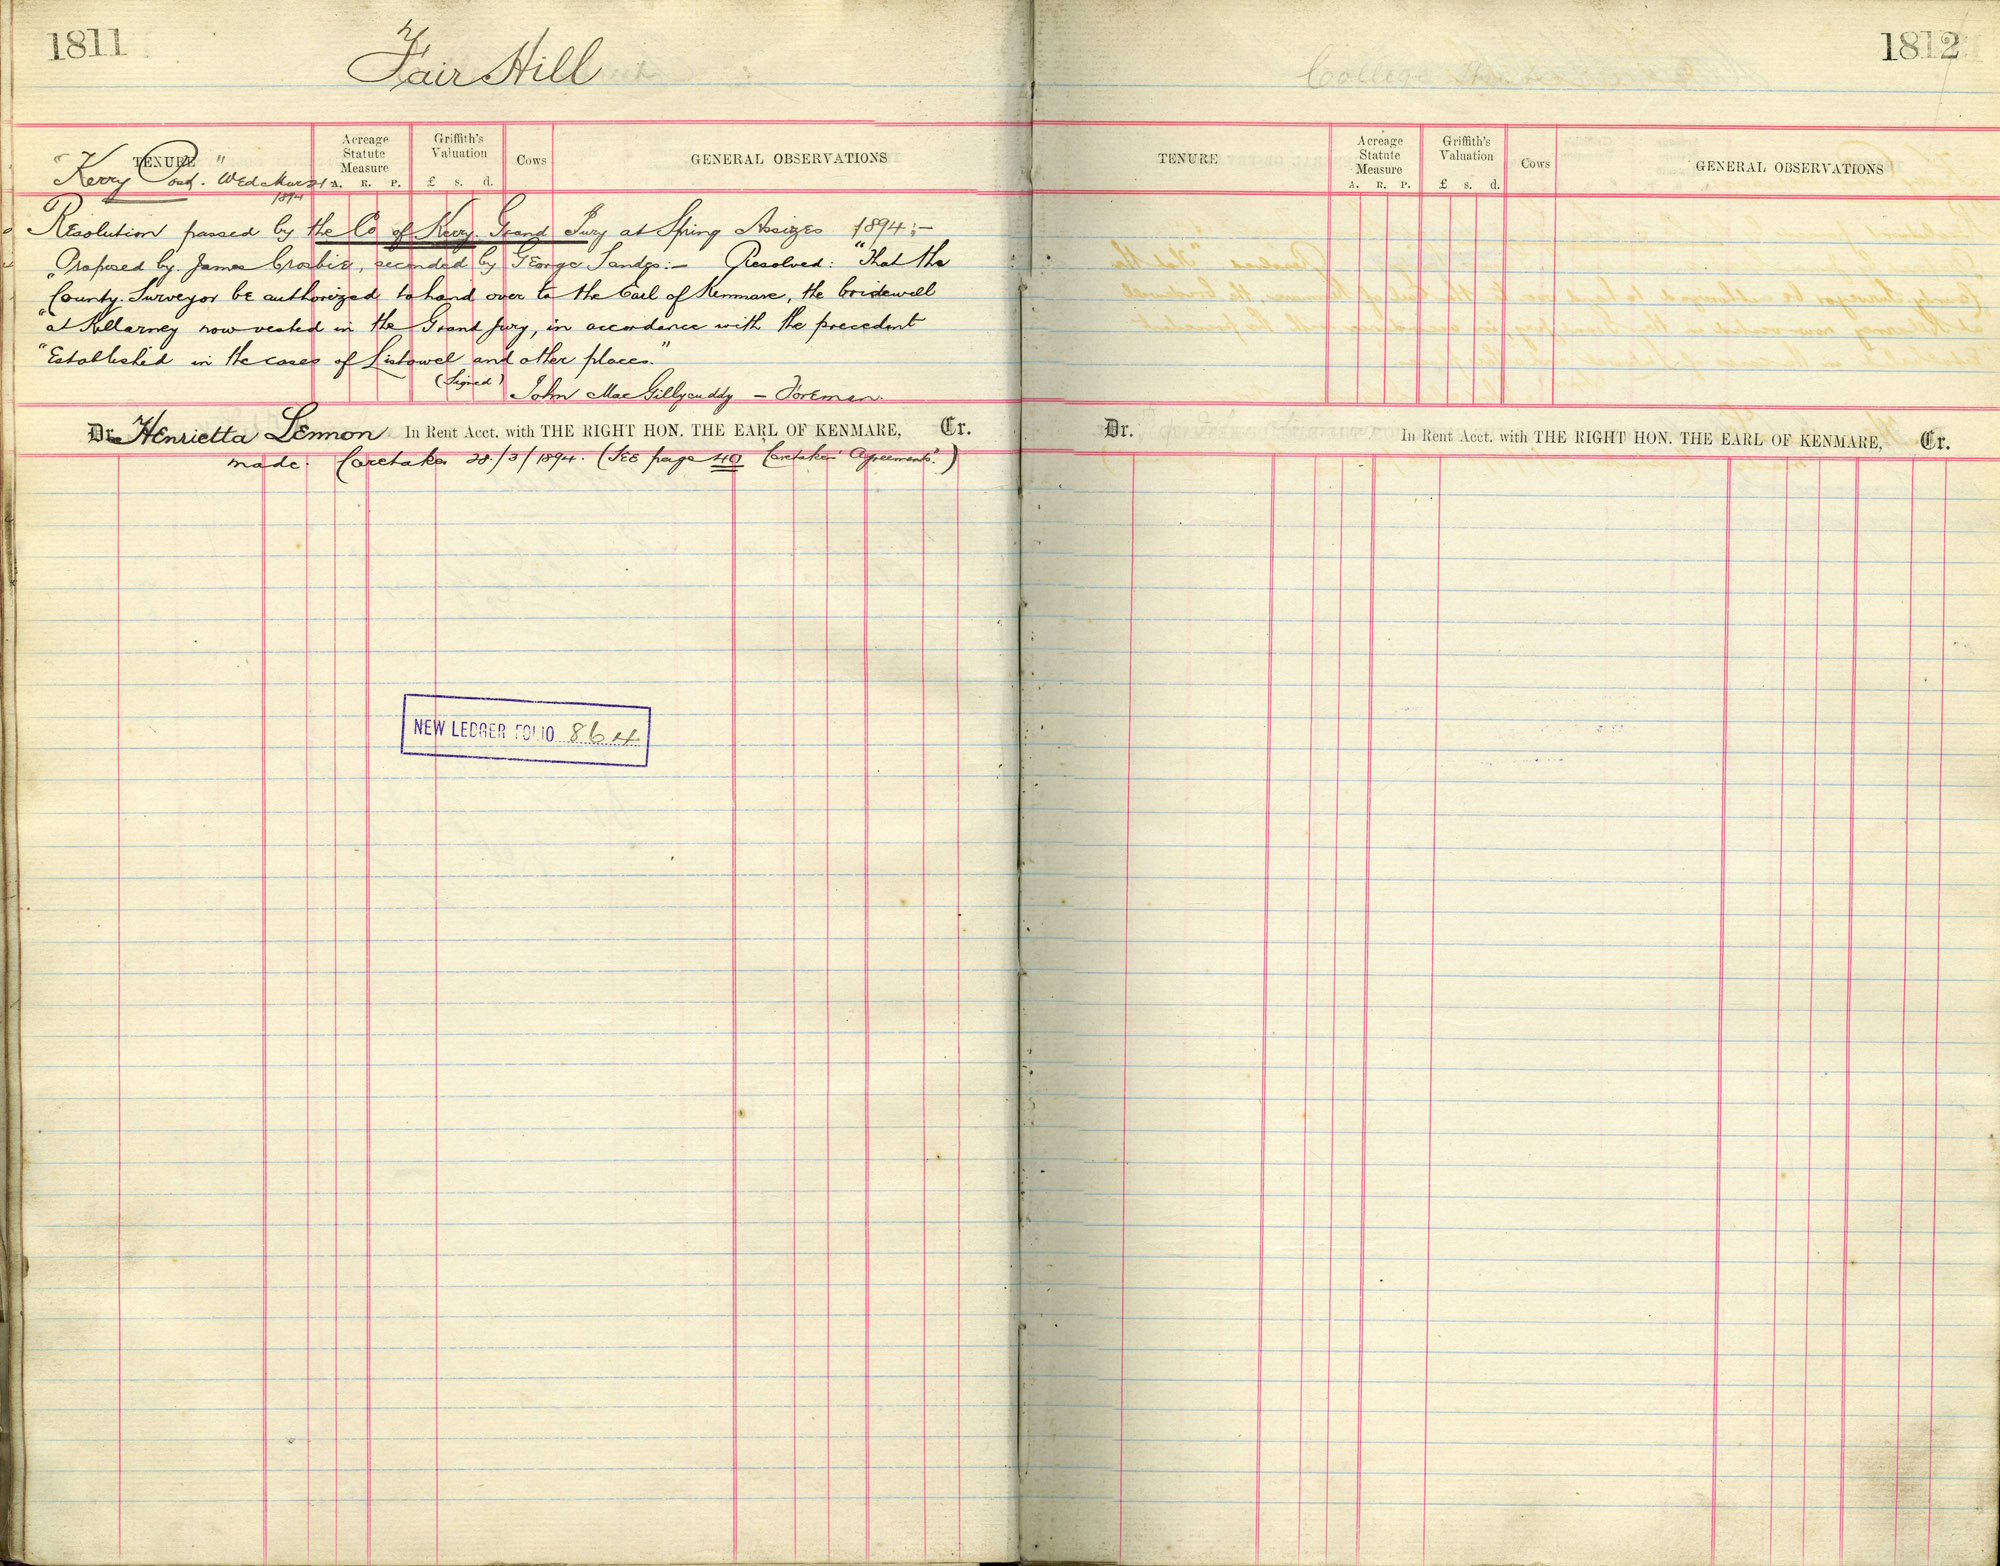 1811
Fair Hill
TENURE
Acreage
Statute
Measure
A. R. P.
Griffith's
Valuation
£ s. d.
Cows
GENERAL OBSERVATIONS
"Kerry Post." Wed Mar 21
1894
Resolution passed by the Co of Kerry Grand Jury at Spring Assizes 1894:-
"Proposed by James Crosbie, seconded by George Sandes:- Resolved: "That the
"County Surveyor be authorized to hand over to the Earl of Kenmare, the bridewell
"at Killarney now vested in the Grand Jury, in accordance with the precedent
"Established in the cases of Listowel and other places."
(Signed) John MacGillycuddy - Foreman.
Dr. Henrietta Lennon In Rent Acct. with THE RIGHT HON. THE EARL OF KENMARE, Cr.
made Caretaker 28/3/1894. (See page 40 "Caretakers Agreements".)
NEW LEDGER FOLIO 864
1812
College
TENURE
Acreage
Statute
Measure
A. R. P.
Griffith's
Valuation
£ s. d.
Cows
GENERAL OBSERVATIONS
Dr. In Rent Acct. with THE RIGHT HON. THE EARL OF KENMARE, Cr.